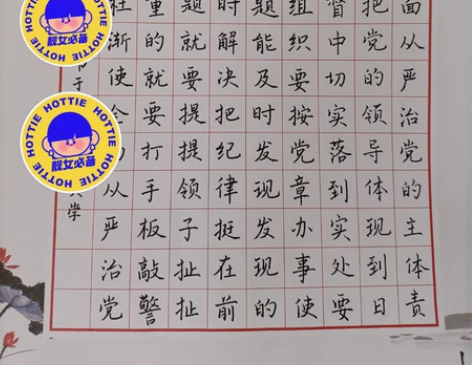 面从严治党的主体责
把党的领导体现到日
督中切实落到实处要
组织要按党章办事使
题能及时发现发现的
时解决把纪律挺在前
题就要提提领子扯扯
重的就要打手板敲警
渐使从严治党
大学
HOTTIE HOTTIE HOTTIE
靓女必备
HOTTIE HOTTIE HOTTIE HOTTIE
靓女必备